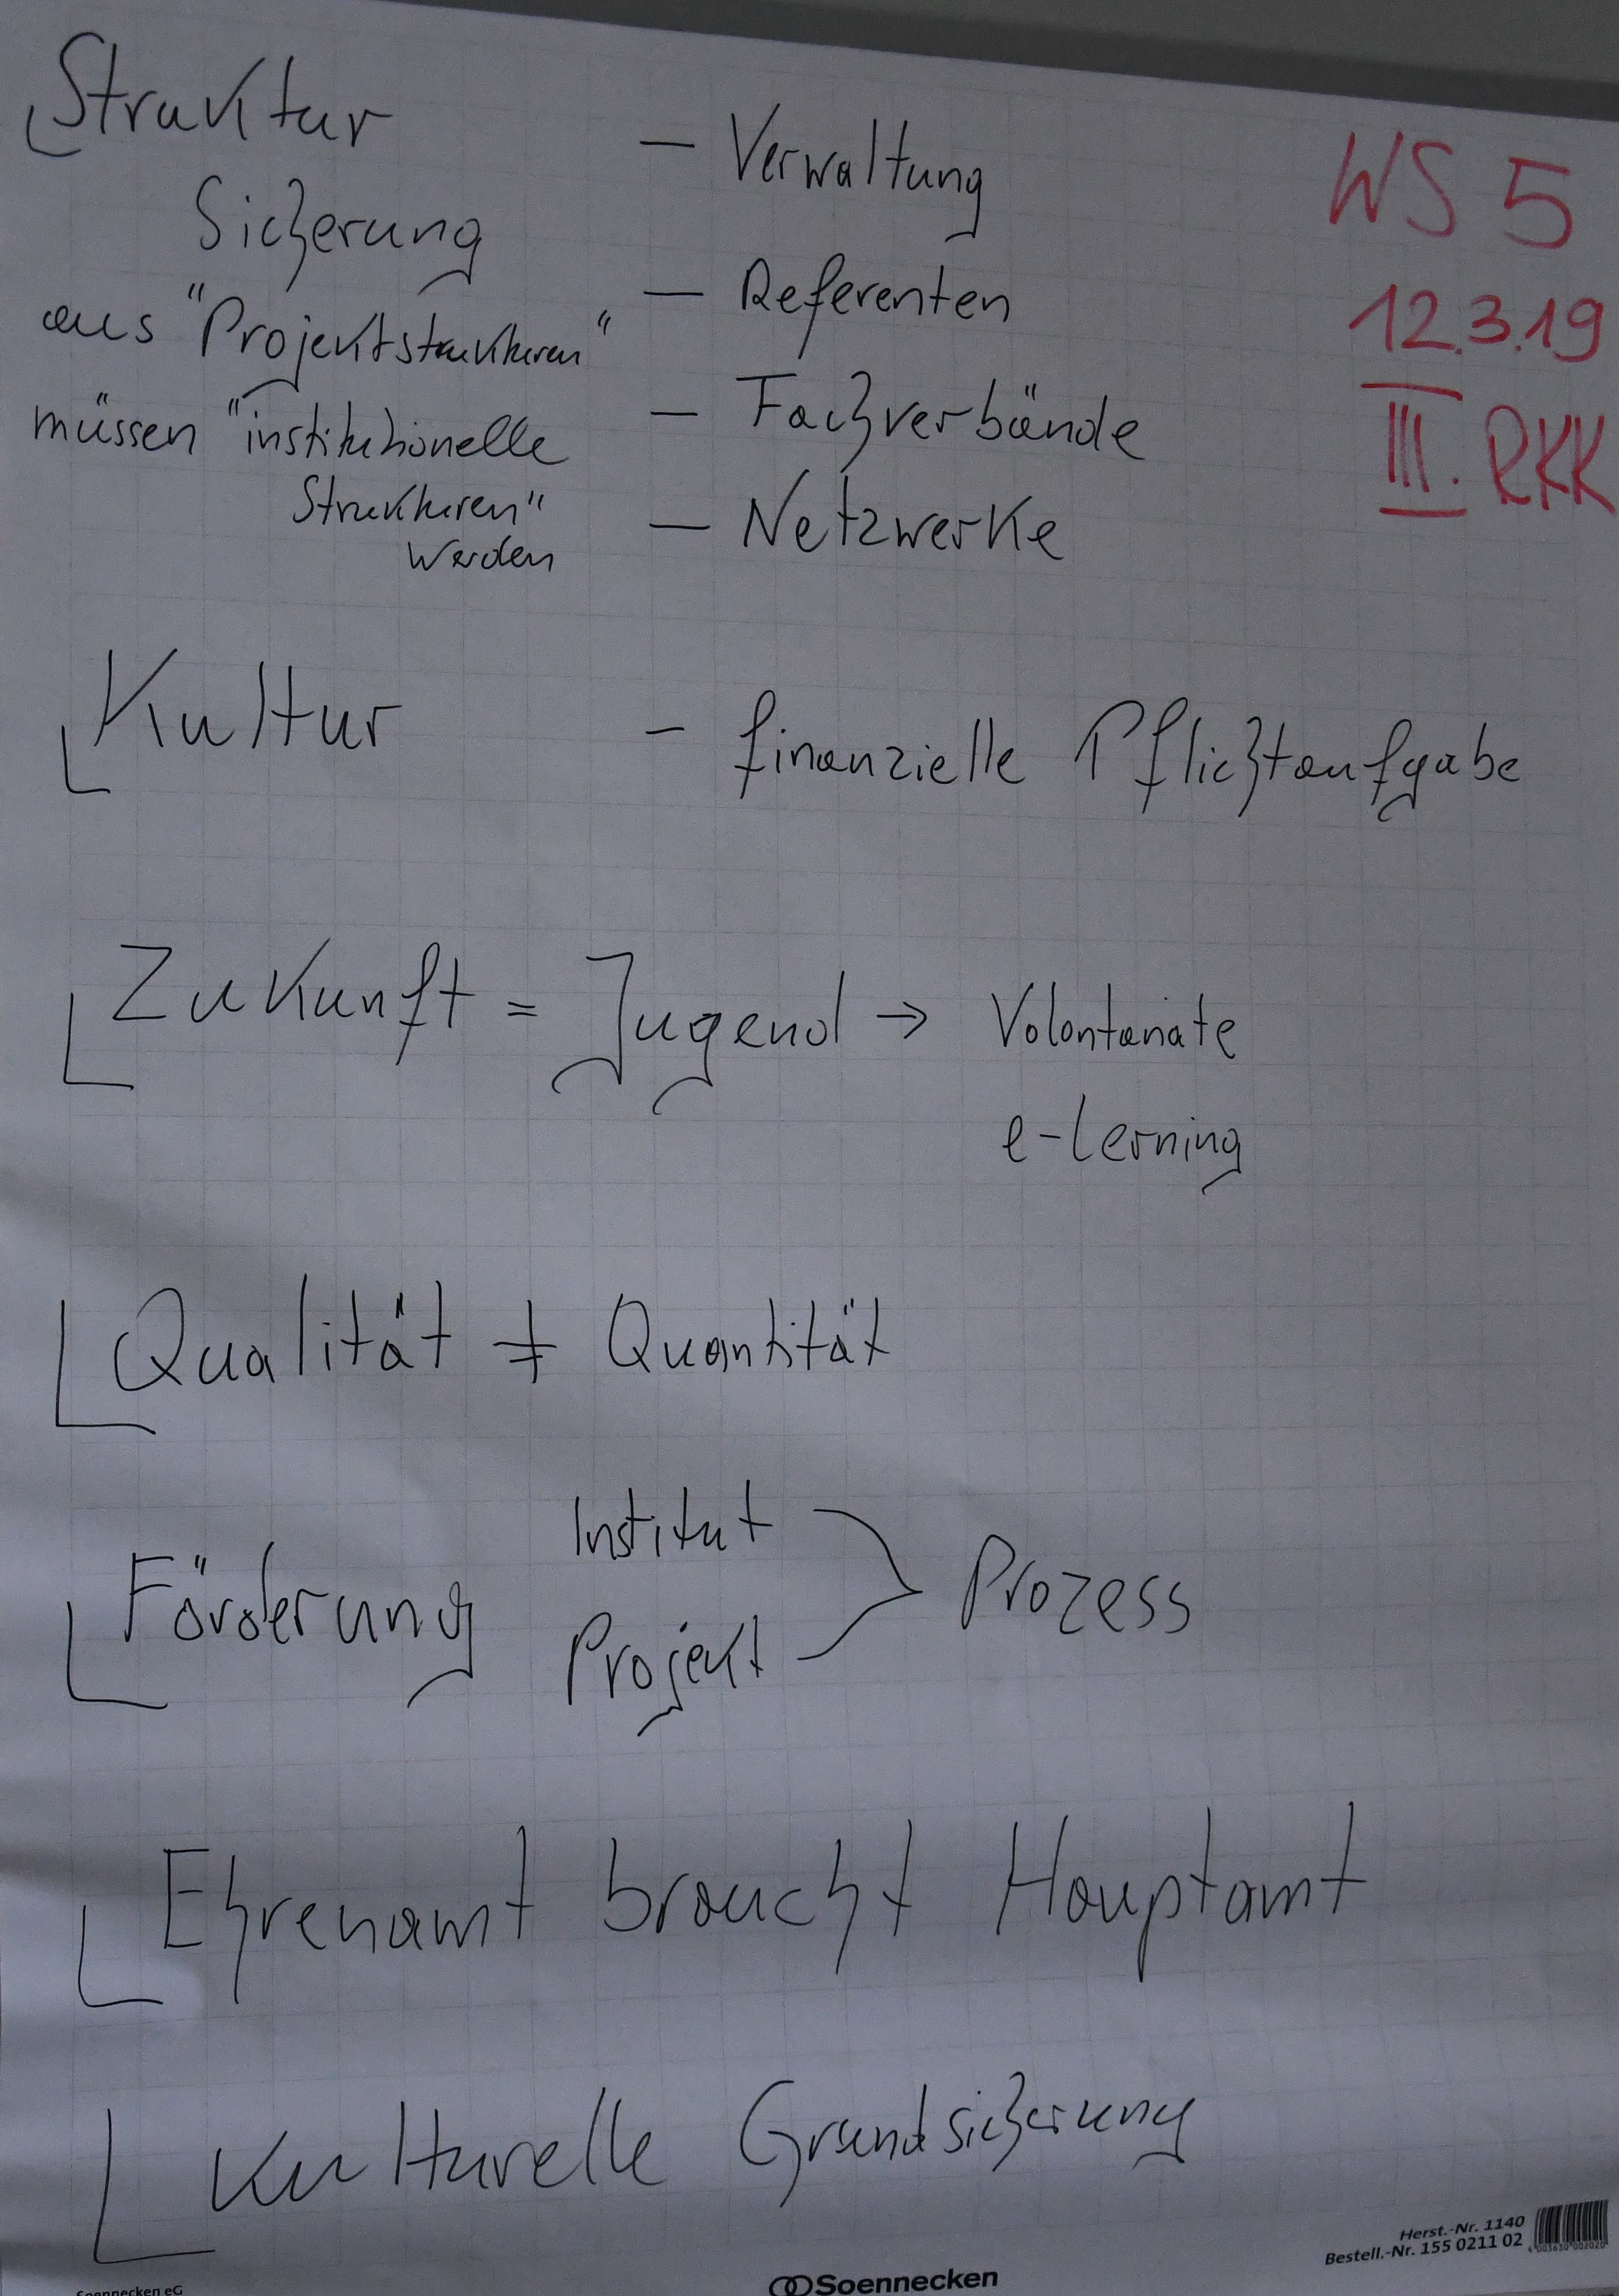 Struktur
Sicherung
aus "Projektstrukturen"
müssen "institutionelle
Strukturen"
werden
– Verwaltung
– Referenten
– Fachverbände
– Netzwerke
WS 5
12.3.19
III. RKK
Kultur – finanzielle Pflichtaufgabe
Zukunft = Jugend → Volontariate
e-lerning
Qualität ≠ Quantität
Förderung Institut
Projekt
Prozess
Ehrenamt braucht Hauptamt
Kulturelle Grundsicherung
Herst.-Nr. 1140
Bestell.-Nr. 155 0211 02
Soennecken eG
Soennecken